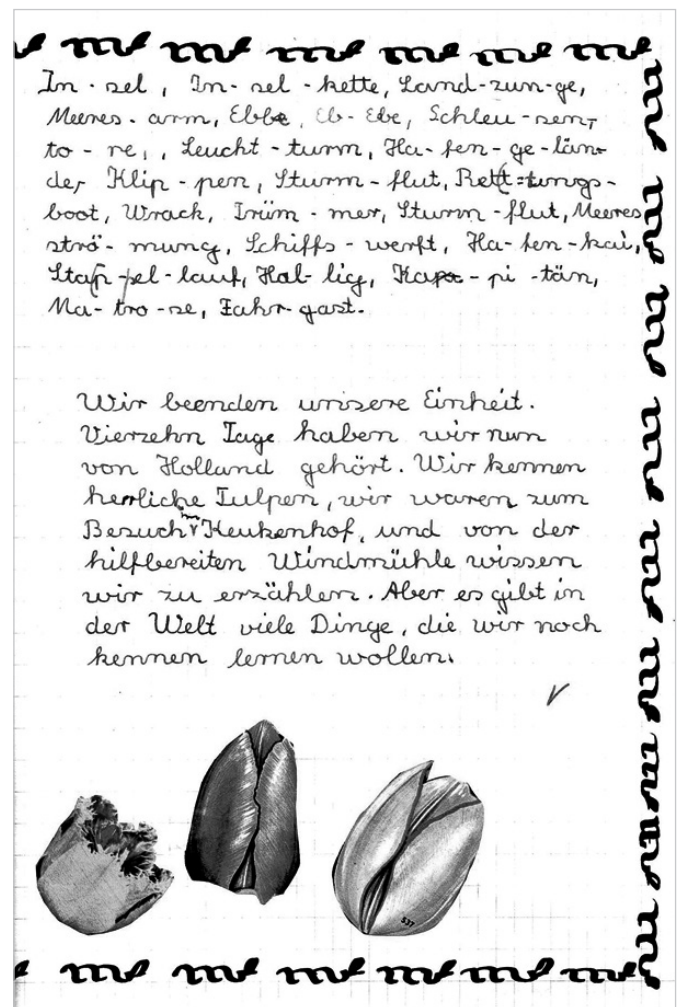 In - sel, In - sel - kette, Land - zun - ge,
Meeres - arm, Ebbe, Eb - Ebe, Schleu - sen,
to - re, , Leucht - turm, Ha - fen - ge - län -
de, Klip - pen, Sturm - flut, Rett - ungs -
boot, Wrack, Trüm - mer, Sturm - flut, Meeres
strö - mung, Schiffs - werft, Ha - fen - kai,
Stap - pel - lauf, Hal - lig, Ka - pi - tän,
Ma - tro - se, Fahr - gast.
Wir beenden unsere Einheit.
Vierzehn Tage haben wir nun
von Holland gehört. Wir kennen
herrliche Tulpen, wir waren zum
Besuch im Keukenhof, und von der
hilfbereiten Windmühle wissen
wir zu erzählen. Aber es gibt in
der Welt viele Dinge, die wir noch
kennen lernen wollen.
537